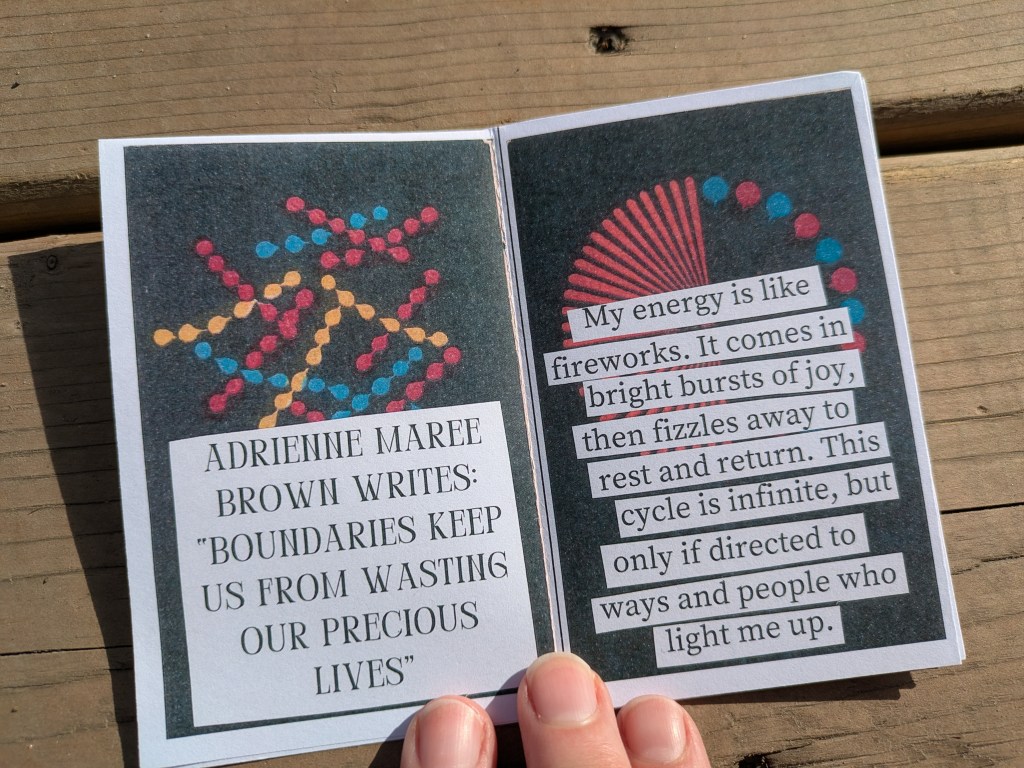 ADRIENNE MAREE
BROWN WRITES:
"BOUNDARIES KEEP
US FROM WASTING
OUR PRECIOUS
LIVES"
My energy is like
fireworks. It comes in
bright bursts of joy,
then fizzles away to
rest and return. This
cycle is infinite, but
only if directed to
ways and people who
light me up.